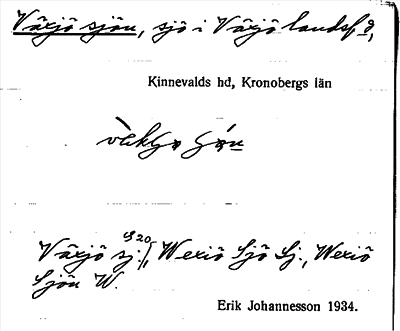 Växjö sjön, sjö i Växjö landsf.d,
Kinnevalds hd, Kronobergs län
Växjö sj. S 20, Wexiö Sjö Sj., Wexiö
Sjön W.
Erik Johannesson 1934.